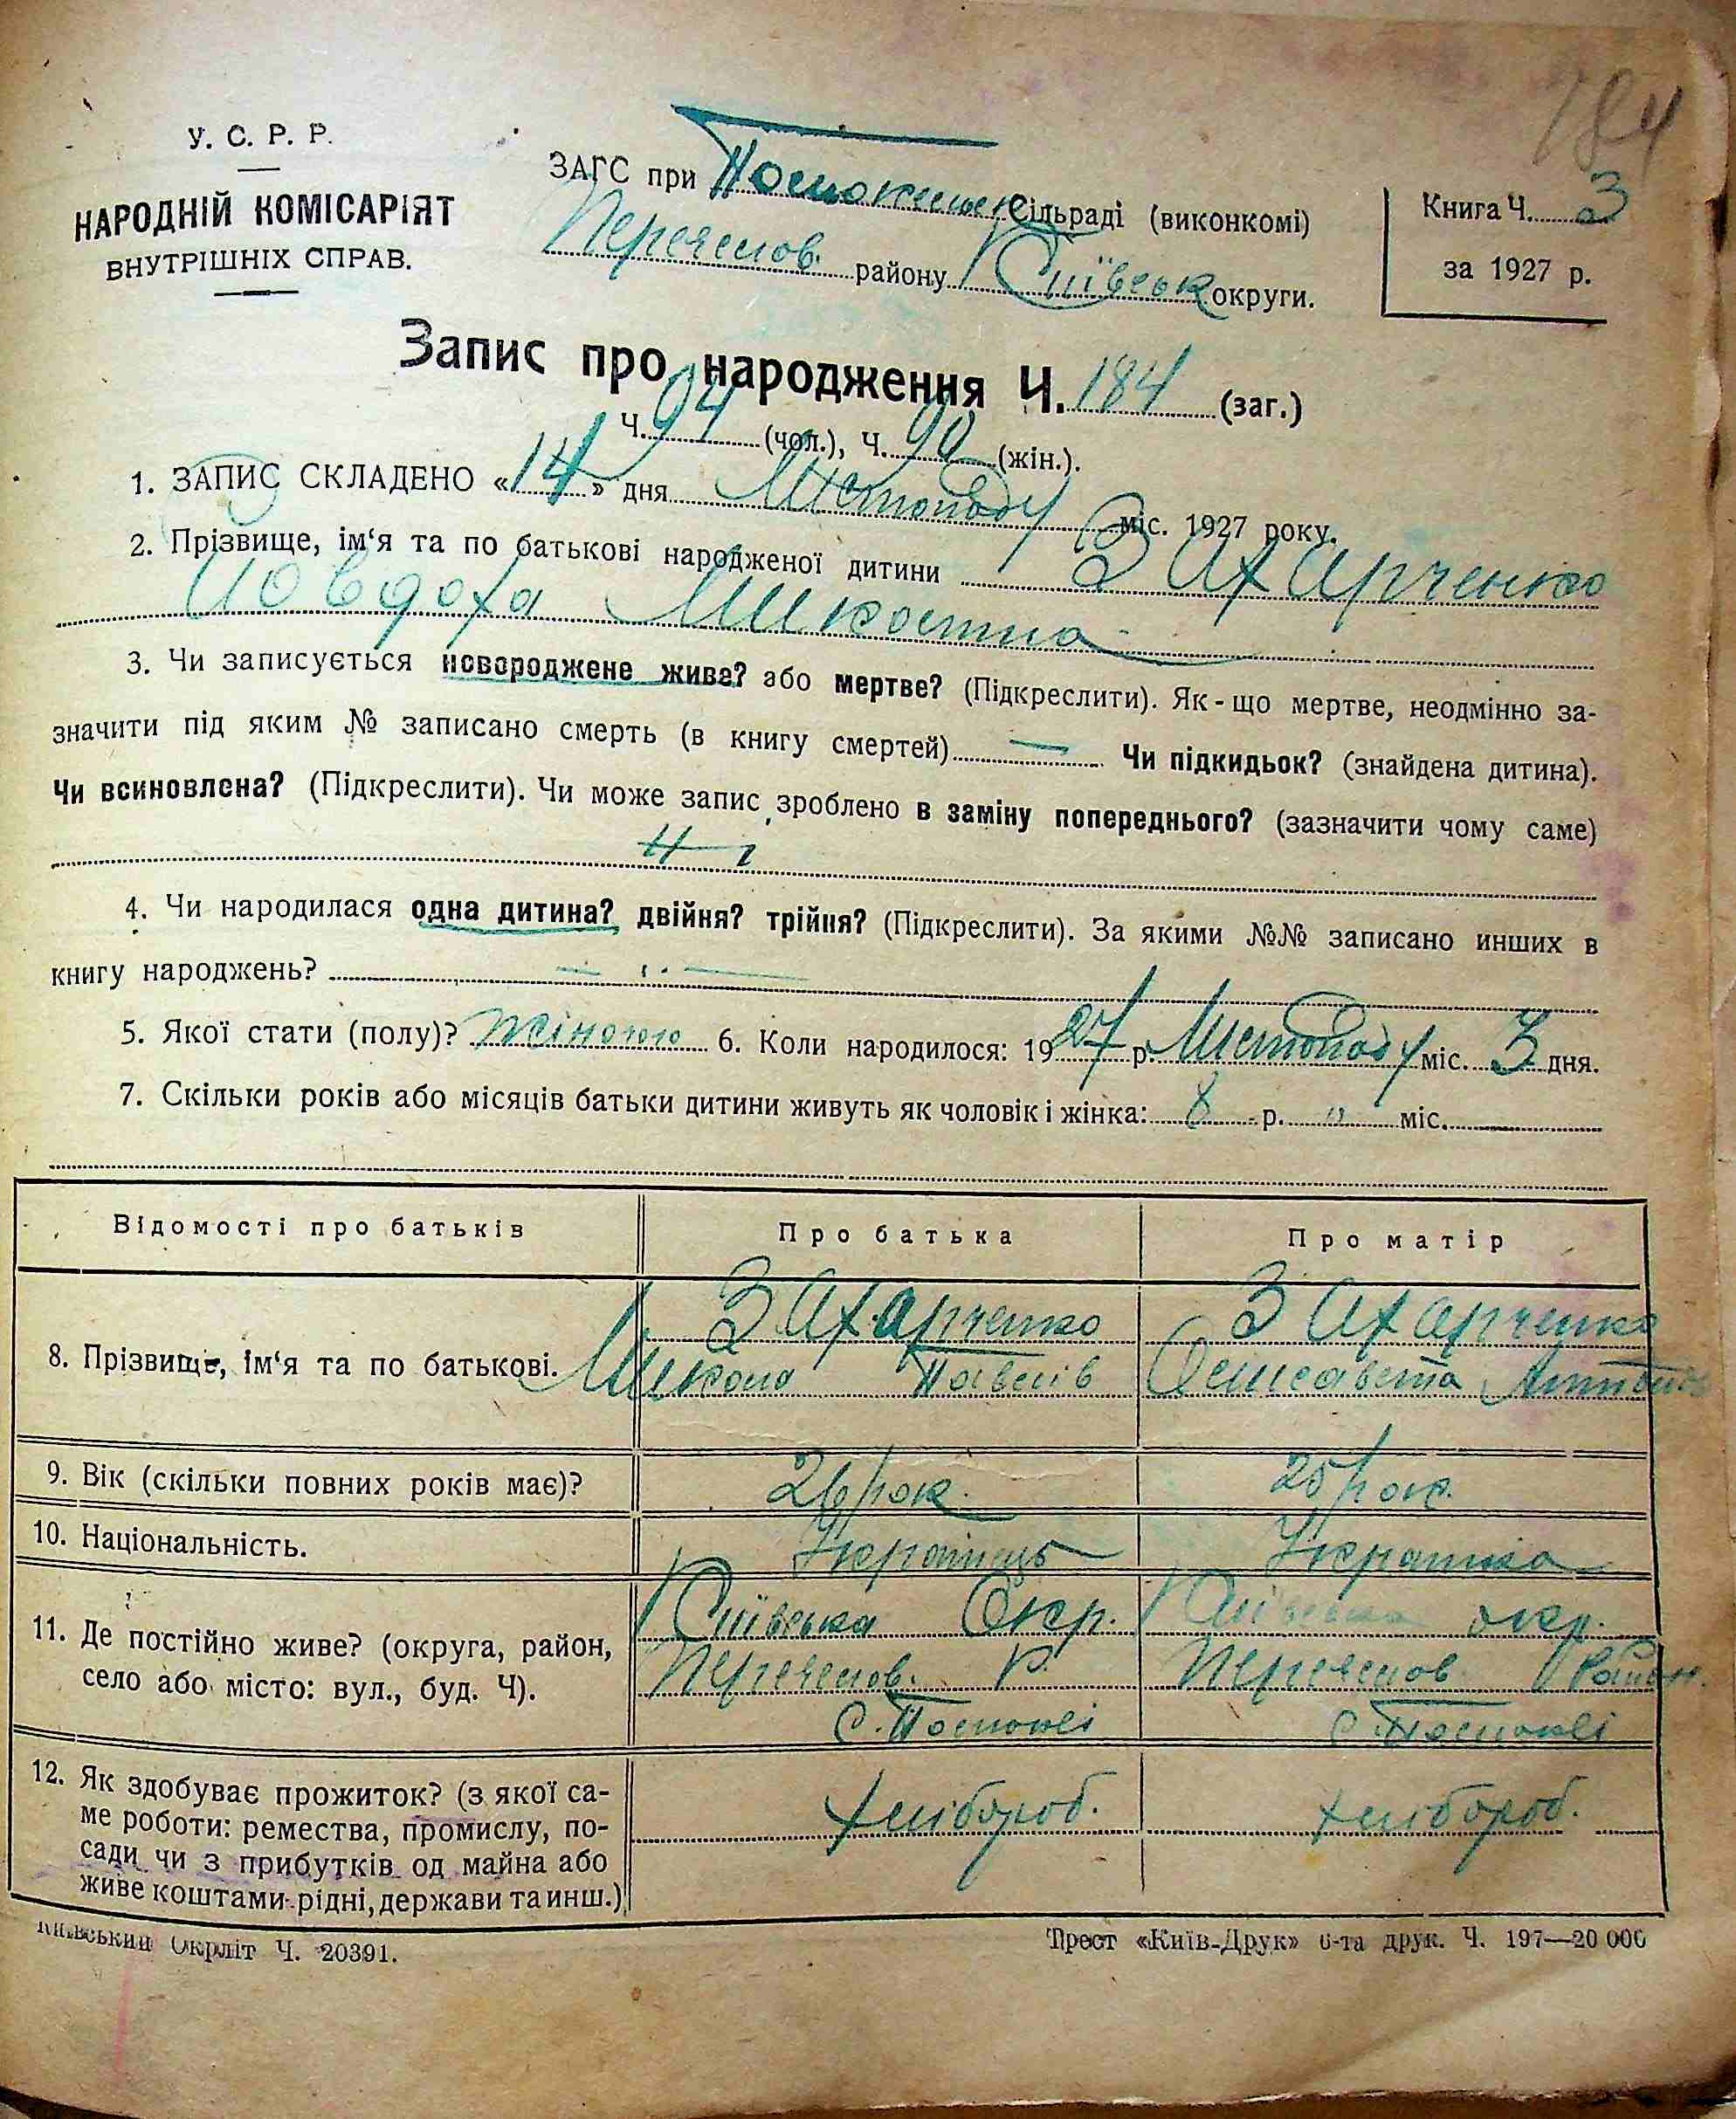 184
У. С. Р. Р.
НАРОДНІЙ КОМІСАРІЯТ
ВНУТРІШНІХ СПРАВ.
ЗАГС при сільраді (виконкомі)
Переяслов. району Київськ округи.
Книга Ч. 3
за 1927 р.
Запис про народження Ч. 184 (заг.)
Ч. 94 (чол.), Ч. 90 (жін.).
1. ЗАПИС СКЛАДЕНО «14» дня Листопаду міс. 1927 року.
2. Прізвище, ім‘я та по батькові народженої дитини Захарченко
Иовдоха Микол
3. Чи записується новороджене живе? або мертве? (Підкреслити). Як-що мертве, неодмінно за-
значити під яким № записано смерть (в книгу смертей) — Чи підкидьок? (знайдена дитина).
Чи всиновлена? (Підкреслити). Чи може запис зроблено в заміну попереднього? (зазначити чому саме)
4. Чи народилася одна дитина? двійня? трійня? (Підкреслити). За якими №№ записано инших в
книгу народжень?
5. Якої стати (полу)? жіночо 6. Коли народилося: 1927 р. Листопаду міс. 3 дня.
7. Скільки років або місяців батьки дитини живуть як чоловік і жінка: 8 р. " міс.
Відомості про батьків Про батька Про матір
8. Прізвище, ім‘я та по батькові. Захарченко Захарченко
Микола Павлів Єлисавета
9. Вік (скільки повних років має)? 26 рок. 25 рок.
10. Національність. Українець Українка
11. Де постійно живе? (округа, район, Київська Окр. Київська окр.
село або місто: вул., буд. Ч). Переяслов. Р. Переяслов Район.
с. Помоклі с. Помоклі
12. Як здобуває прожиток? (з якої са- хлібороб. хлібороб.
ме роботи: ремества, промислу, по-
сади чи з прибутків од майна або
живе коштами рідні, держави та инш.)
Київський Окрліт Ч. 20391.
Трест «Київ-Друк» 6-та друк. Ч. 197—20 000